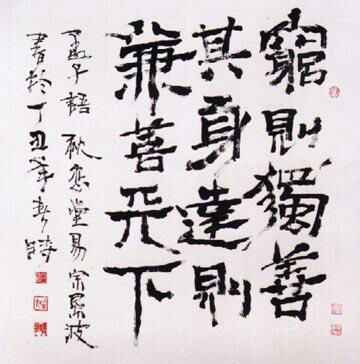 窮則獨善
其身達則
兼善天下
孟子語 耿恋堂易宗景波
書於丁丑年春